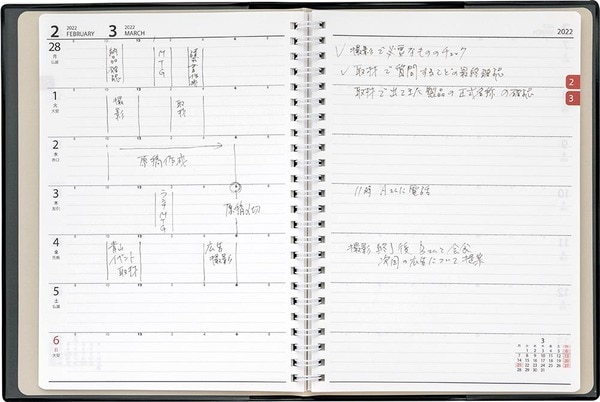 2 2022 FEBRUARY 3 2022 MARCH
28 月 仏滅
納品確認
MTG
1 火 大安
撮影
取材
2 水 赤口
原稿作成
3 木 友引
ランチMTG
原稿〆切
4 金 先負
青山
イベント
取材
広告
撮影
5 土 仏滅
6 日 大安
2022
✓ 撮影で必要なもののチェック
✓ 取材で質問することの最終確認
取材で出てきた製品の正式名称の確認
2
3
11時 Aさんに電話
撮影終了後 Bさんと会食
次回の広告について提案
3